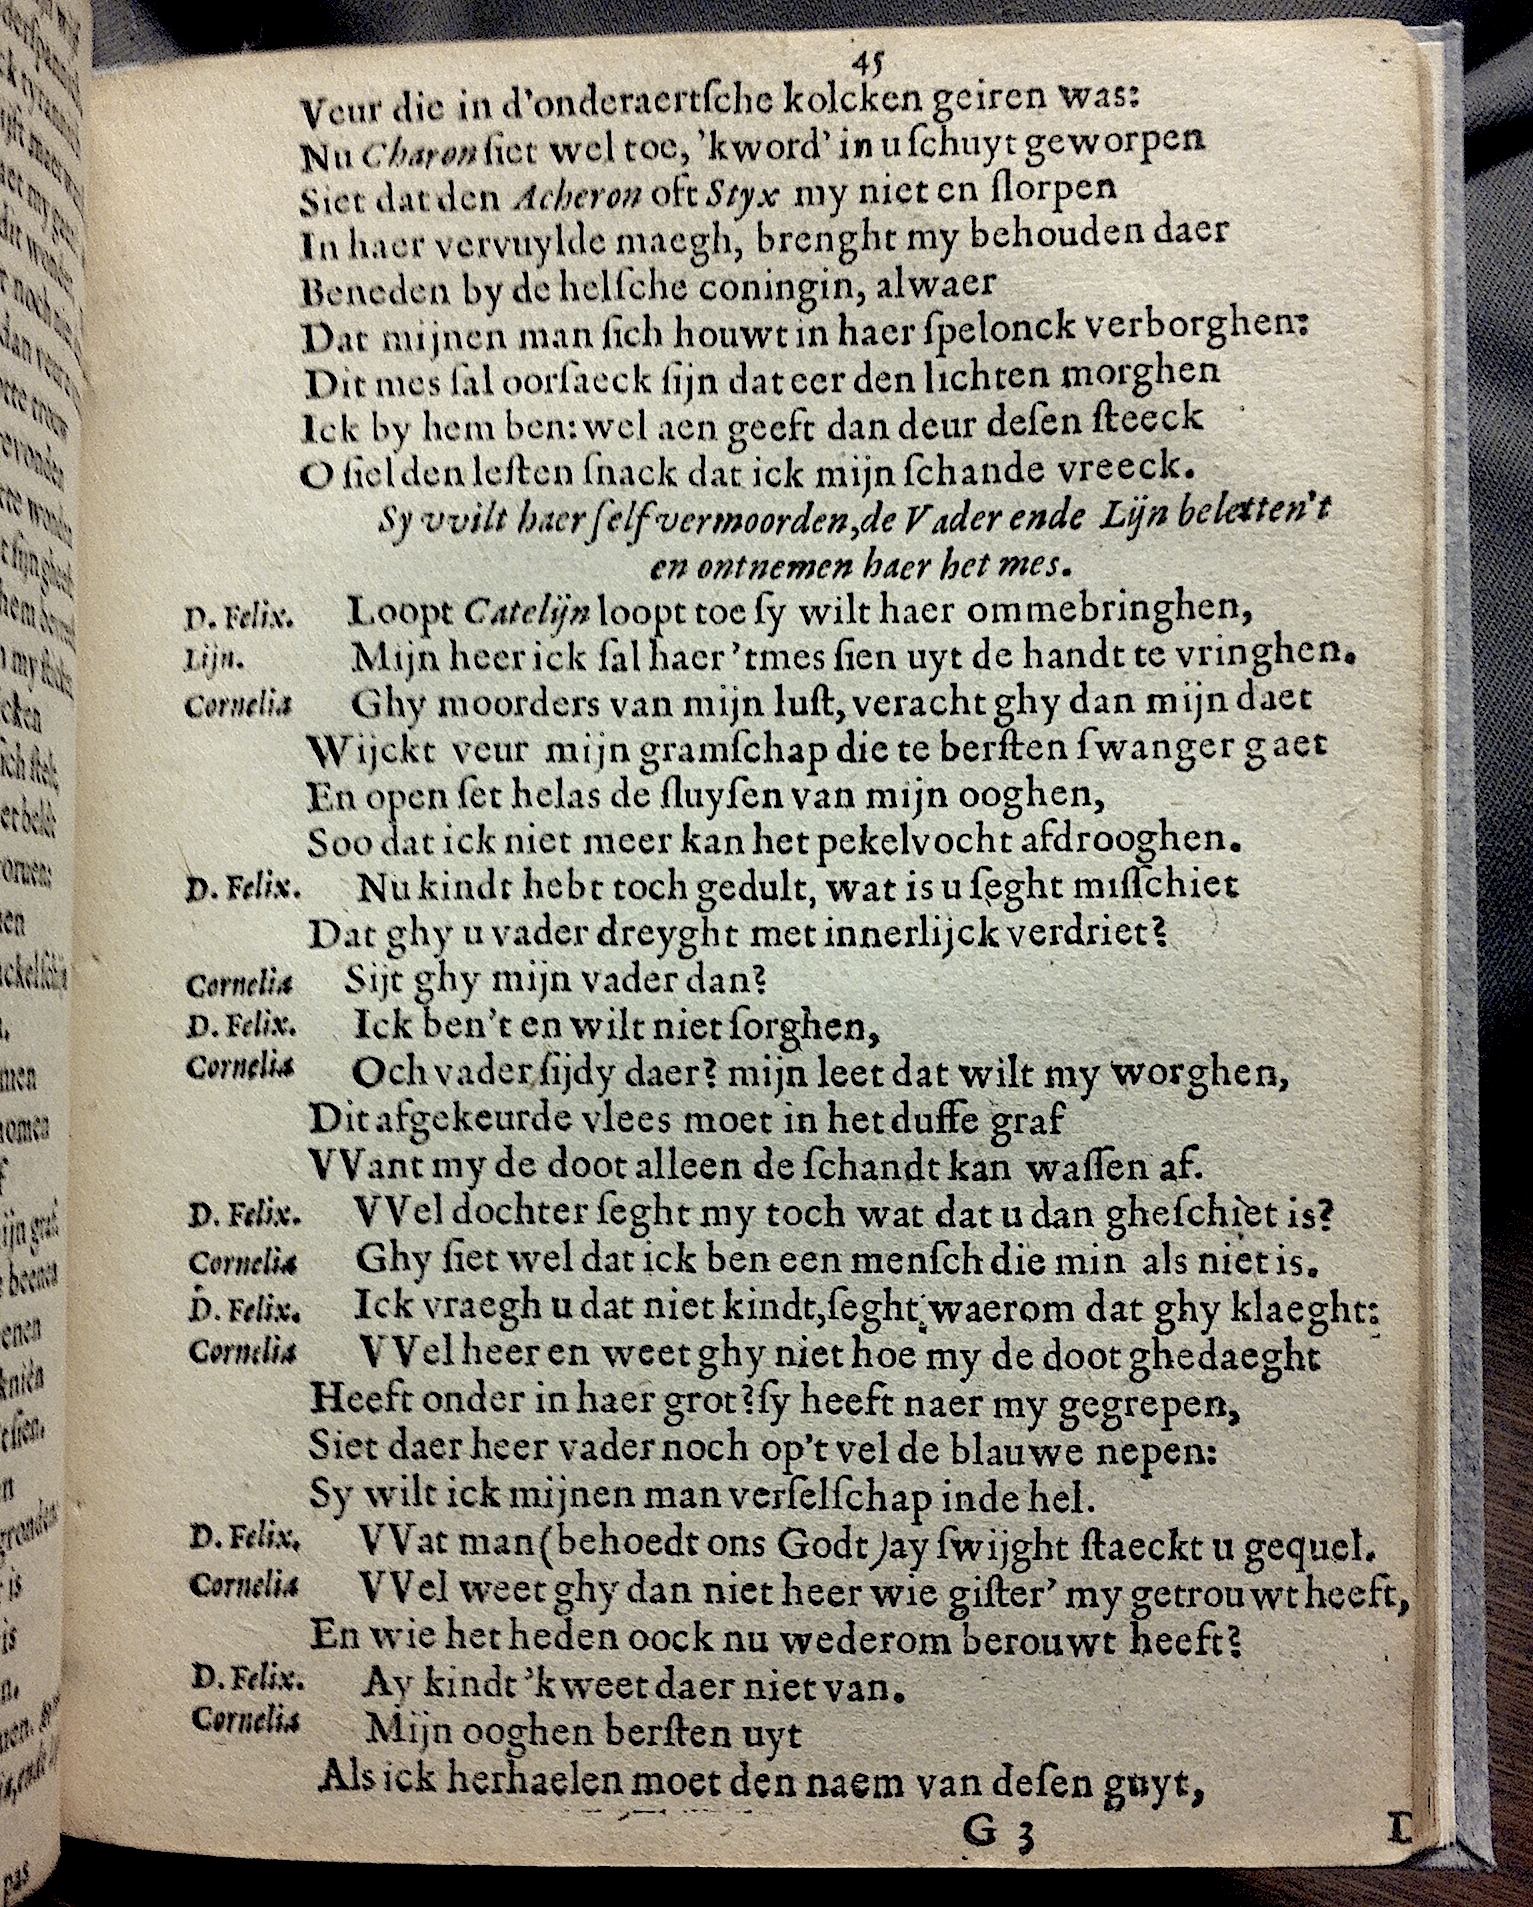 45
Veur die in d'onderaertſche kolcken geiren was:
Nu Charon ſiet wel toe, 'kword' in u ſchuyt geworpen
Siet dat den Acheron oft Styx my niet en ſlorpen
In haer vervuylde maegh, brenght my behouden daer
Beneden by de helſche coningin, alwaer
Dat mijnen man ſich houwt in haer ſpelonck verborghen:
Dit mes ſal oorſaeck ſijn dat eer den lichten morghen
Ick by hem ben: wel aen geeft dan deur deſen ſteeck
O ſiel den leſten ſnack dat ick mijn ſchande vreeck.
Sy vvilt haer ſelf vermoorden, de Vader ende Lijn beletten't
en ontnemen haer het mes.
D. Felix. Loopt Catelijn loopt toe ſy wilt haer ommebringhen,
Lijn. Mijn heer ick ſal haer 'tmes ſien uyt de handt te vringhen.
Cornelia Ghy moorders van mijn luſt, veracht ghy dan mijn daet
Wijckt veur mijn gramſchap die te berſten ſwanger gaet
En open ſet helas de ſluyſen van mijn ooghen,
Soo dat ick niet meer kan het pekelvocht afdrooghen.
D. Felix. Nu kindt hebt toch gedult, wat is u ſeght miſſchiet
Dat ghy u vader dreyght met innerlijck verdriet?
Cornelia Sijt ghy mijn vader dan?
D. Felix. Ick ben't en wilt niet ſorghen,
Cornelia Och vader ſijdy daer? mijn leet dat wilt my worghen,
Dit afgekeurde vlees moet in het duffe graf
VVant my de doot alleen de ſchandt kan waſſen af.
D. Felix. VVel dochter ſeght my toch wat dat u dan gheſchiet is?
Cornelia Ghy ſiet wel dat ick ben een menſch die min als niet is.
D. Felix. Ick vraegh u dat niet kindt, ſeght waerom dat ghy klaeght:
Cornelia VVel heer en weet ghy niet hoe my de doot ghedaeght
Heeft onder in haer grot? ſy heeft naer my gegrepen,
Siet daer heer vader noch op't vel de blauwe nepen:
Sy wilt ick mijnen man verſelſchap inde hel.
D. Felix. VVat man (behoedt ons Godt) ay ſwijght ſtaeckt u gequel.
Cornelia VVel weet ghy dan niet heer wie giſter' my getrouwt heeft,
En wie het heden oock nu wederom berouwt heeft?
D. Felix. Ay kindt 'kweet daer niet van.
Cornelia Mijn ooghen berſten uyt
Als ick herhaelen moet den naem van deſen guyt,
G 3